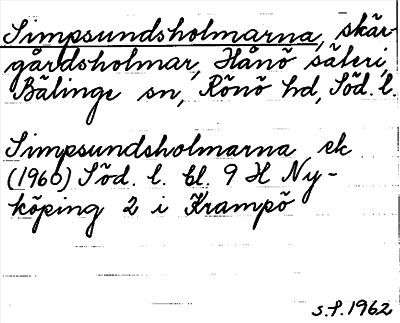 Simpsundsholmarna, skär-
gårdsholmar, Hånö säteri,
Bälinge sn, Rönö hd, Söd. l.
Simpsundsholmarna ek
(1960) Söd. l. bl. 9 H Ny-
köping 2 i Krampö
s.f. 1962